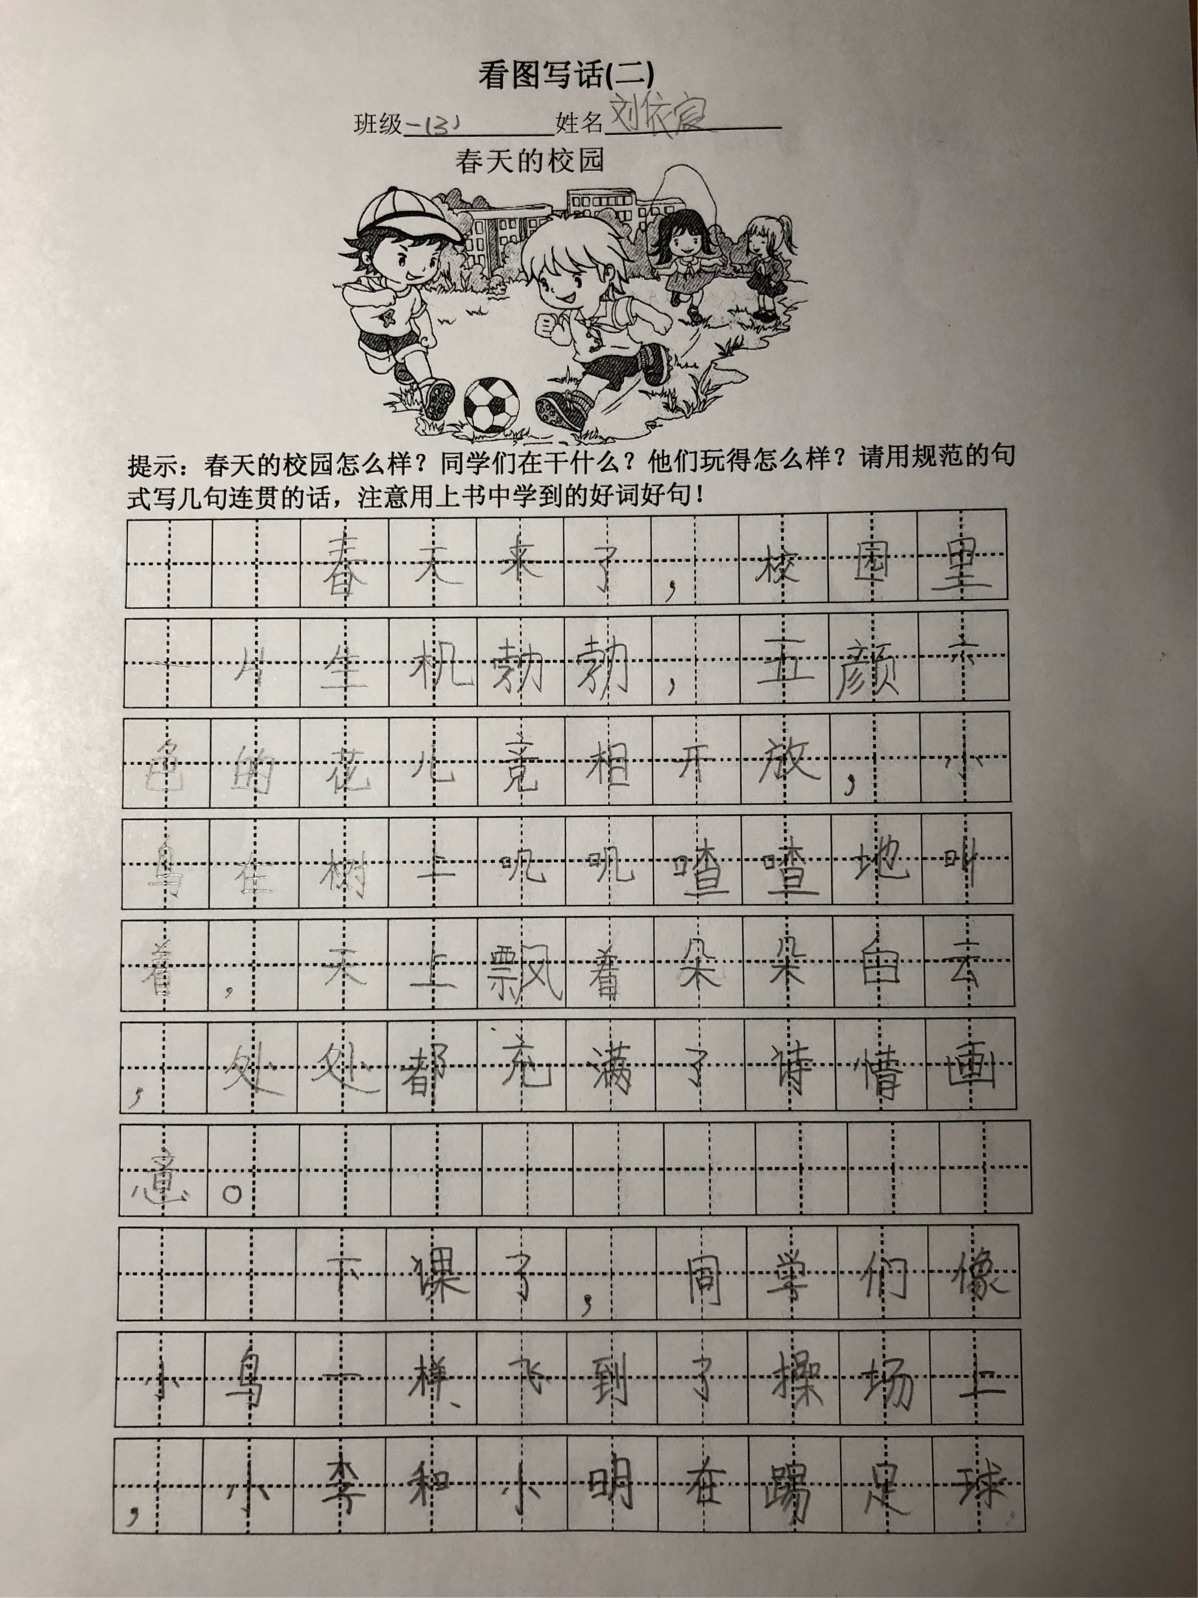 看图写话(二)
班级一(3) 姓名刘依宸
春天的校园
提示：春天的校园怎么样？同学们在干什么？他们玩得怎么样？请用规范的句
式写几句连贯的话，注意用上书中学到的好词好句！
春天来了，校园里
一片生机勃勃，五颜六
色的花儿竞相开放，小
鸟在树上叽叽喳喳地叫
着，天上飘着朵朵白云
，处处都充满了诗情画
意。
下课了，同学们像
小鸟一样飞到了操场上
，小李和小明在踢足球